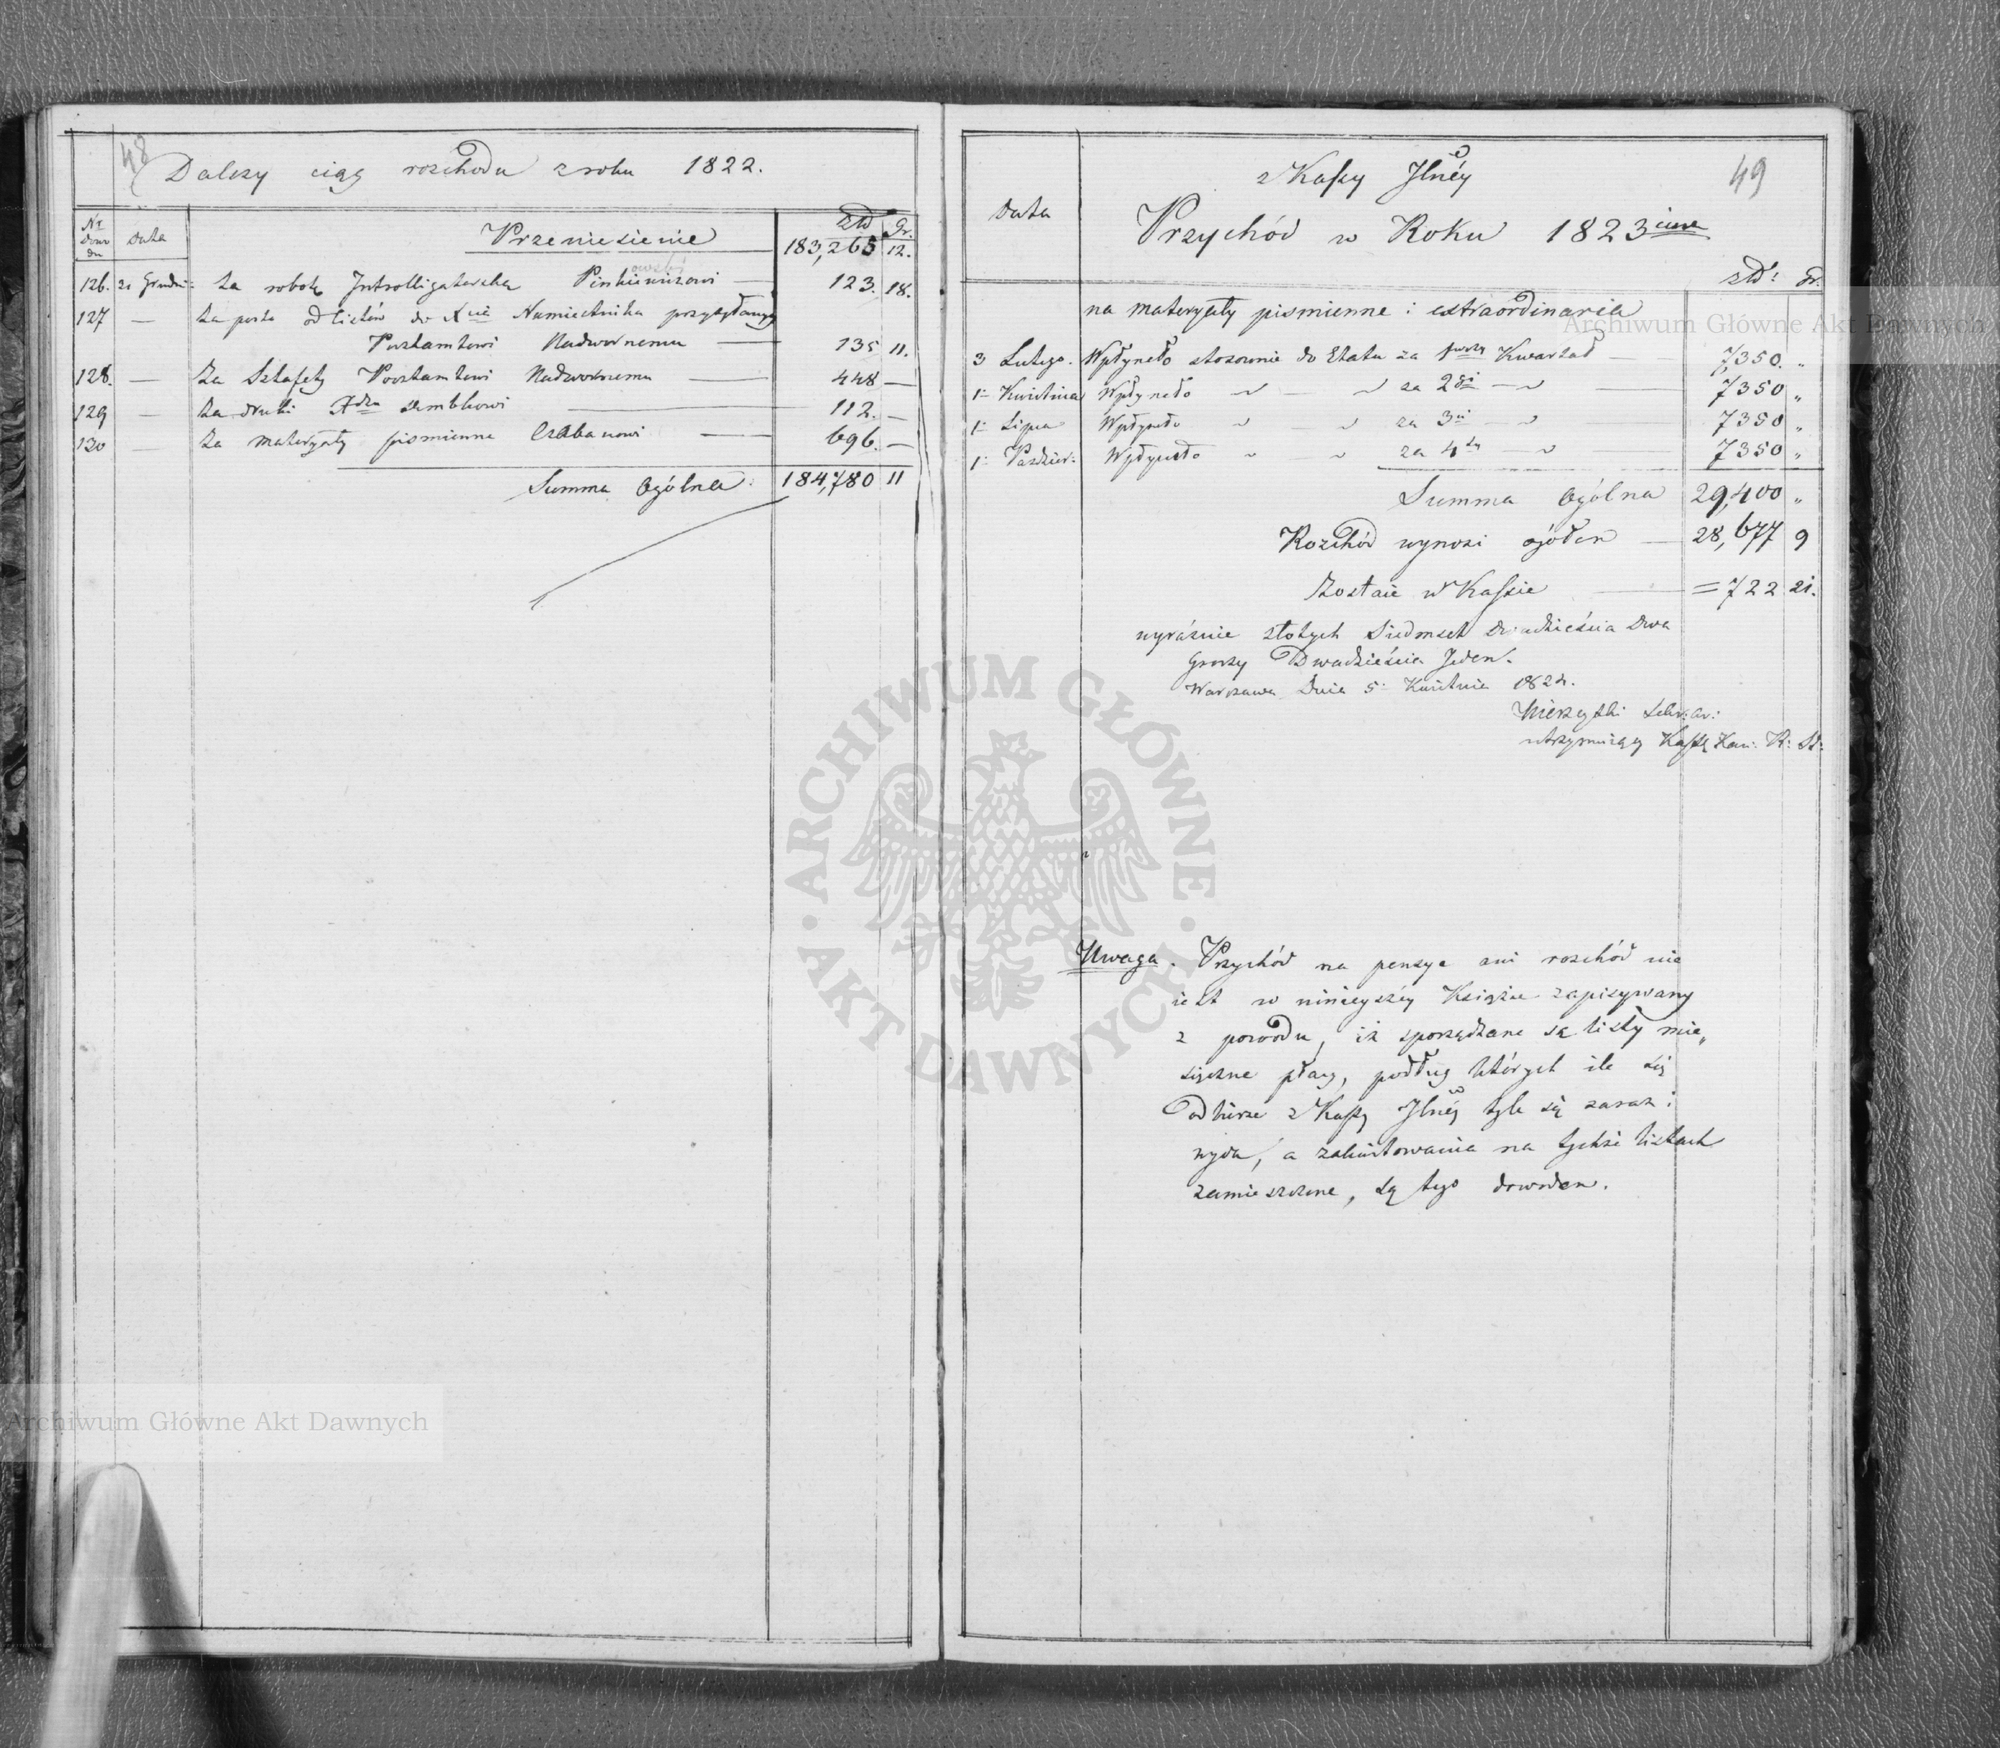 48
Dalszy ciąg rozchodu z roku 1822.
Nr dowodu Data Przeniesienie Złt Gr.
183,265 12.
126. 21 Grudn: Za robotę Introlligatorską Pinkiewiczowi — 123. 18.
127 — Za porto od listów do Xcia Namiestnika przysyłanych
Pocztamtowi Nadwornemu — 135 11.
128. — Za Sztafety Pocztamtowi Nadwornemu — 448 —
129 — Za druki — 112. —
130 — Za materyały pismienne Czabanowi — 696. —
Summa Ogólna: 184,780 11
49
z Kassy Jlnéy
Data Przychód w Roku 1823cim
złt: gr.
na materyały pismienne i extraordinaria
3 Lutego. Wpłynęło stosownie do Etatu za 1wszy Kwartał — 7,350. „
1. Kwietnia Wpłynęło ~ — ~ za 2gi — ~ — 7350 „
1. Lipca Wpłynęło ~ — ~ za 3ci — ~ — 7350 „
1. Paździer: Wpłynęło ~ — ~ za 4ty — ~ — 7350 „
Summa Ogólna 29,400 „
Rozchód wynosi ogółem — 28,677 9
Zostaie w Kassie — = 722 21.
wyraźnie złotych Siedmset Dwadzieścia Dwa
Groszy Dwadzieścia Jeden.
Warszawa Dnia 5. Kwietnia 1824.
Sekr:
utrzymuiący Kassę Kan: R: St:
Uwaga. Przychód na pensye ani rozchód nie
iest w ninieyszéy Książce zapisywany
z powodu, iż sporządzane są listy mie„
sięczne płacy, podług których ile się
odbierze z Kassy Jlnéy tyle się zaraz
wyda, a zakwitowania na tychże listach
zamieszczone, są tego dowodem.
Archiwum Główne Akt Dawnych
ARCHIWUM GŁÓWNE · AKT DAWNYCH ·
Archiwum Główne Akt Dawnych